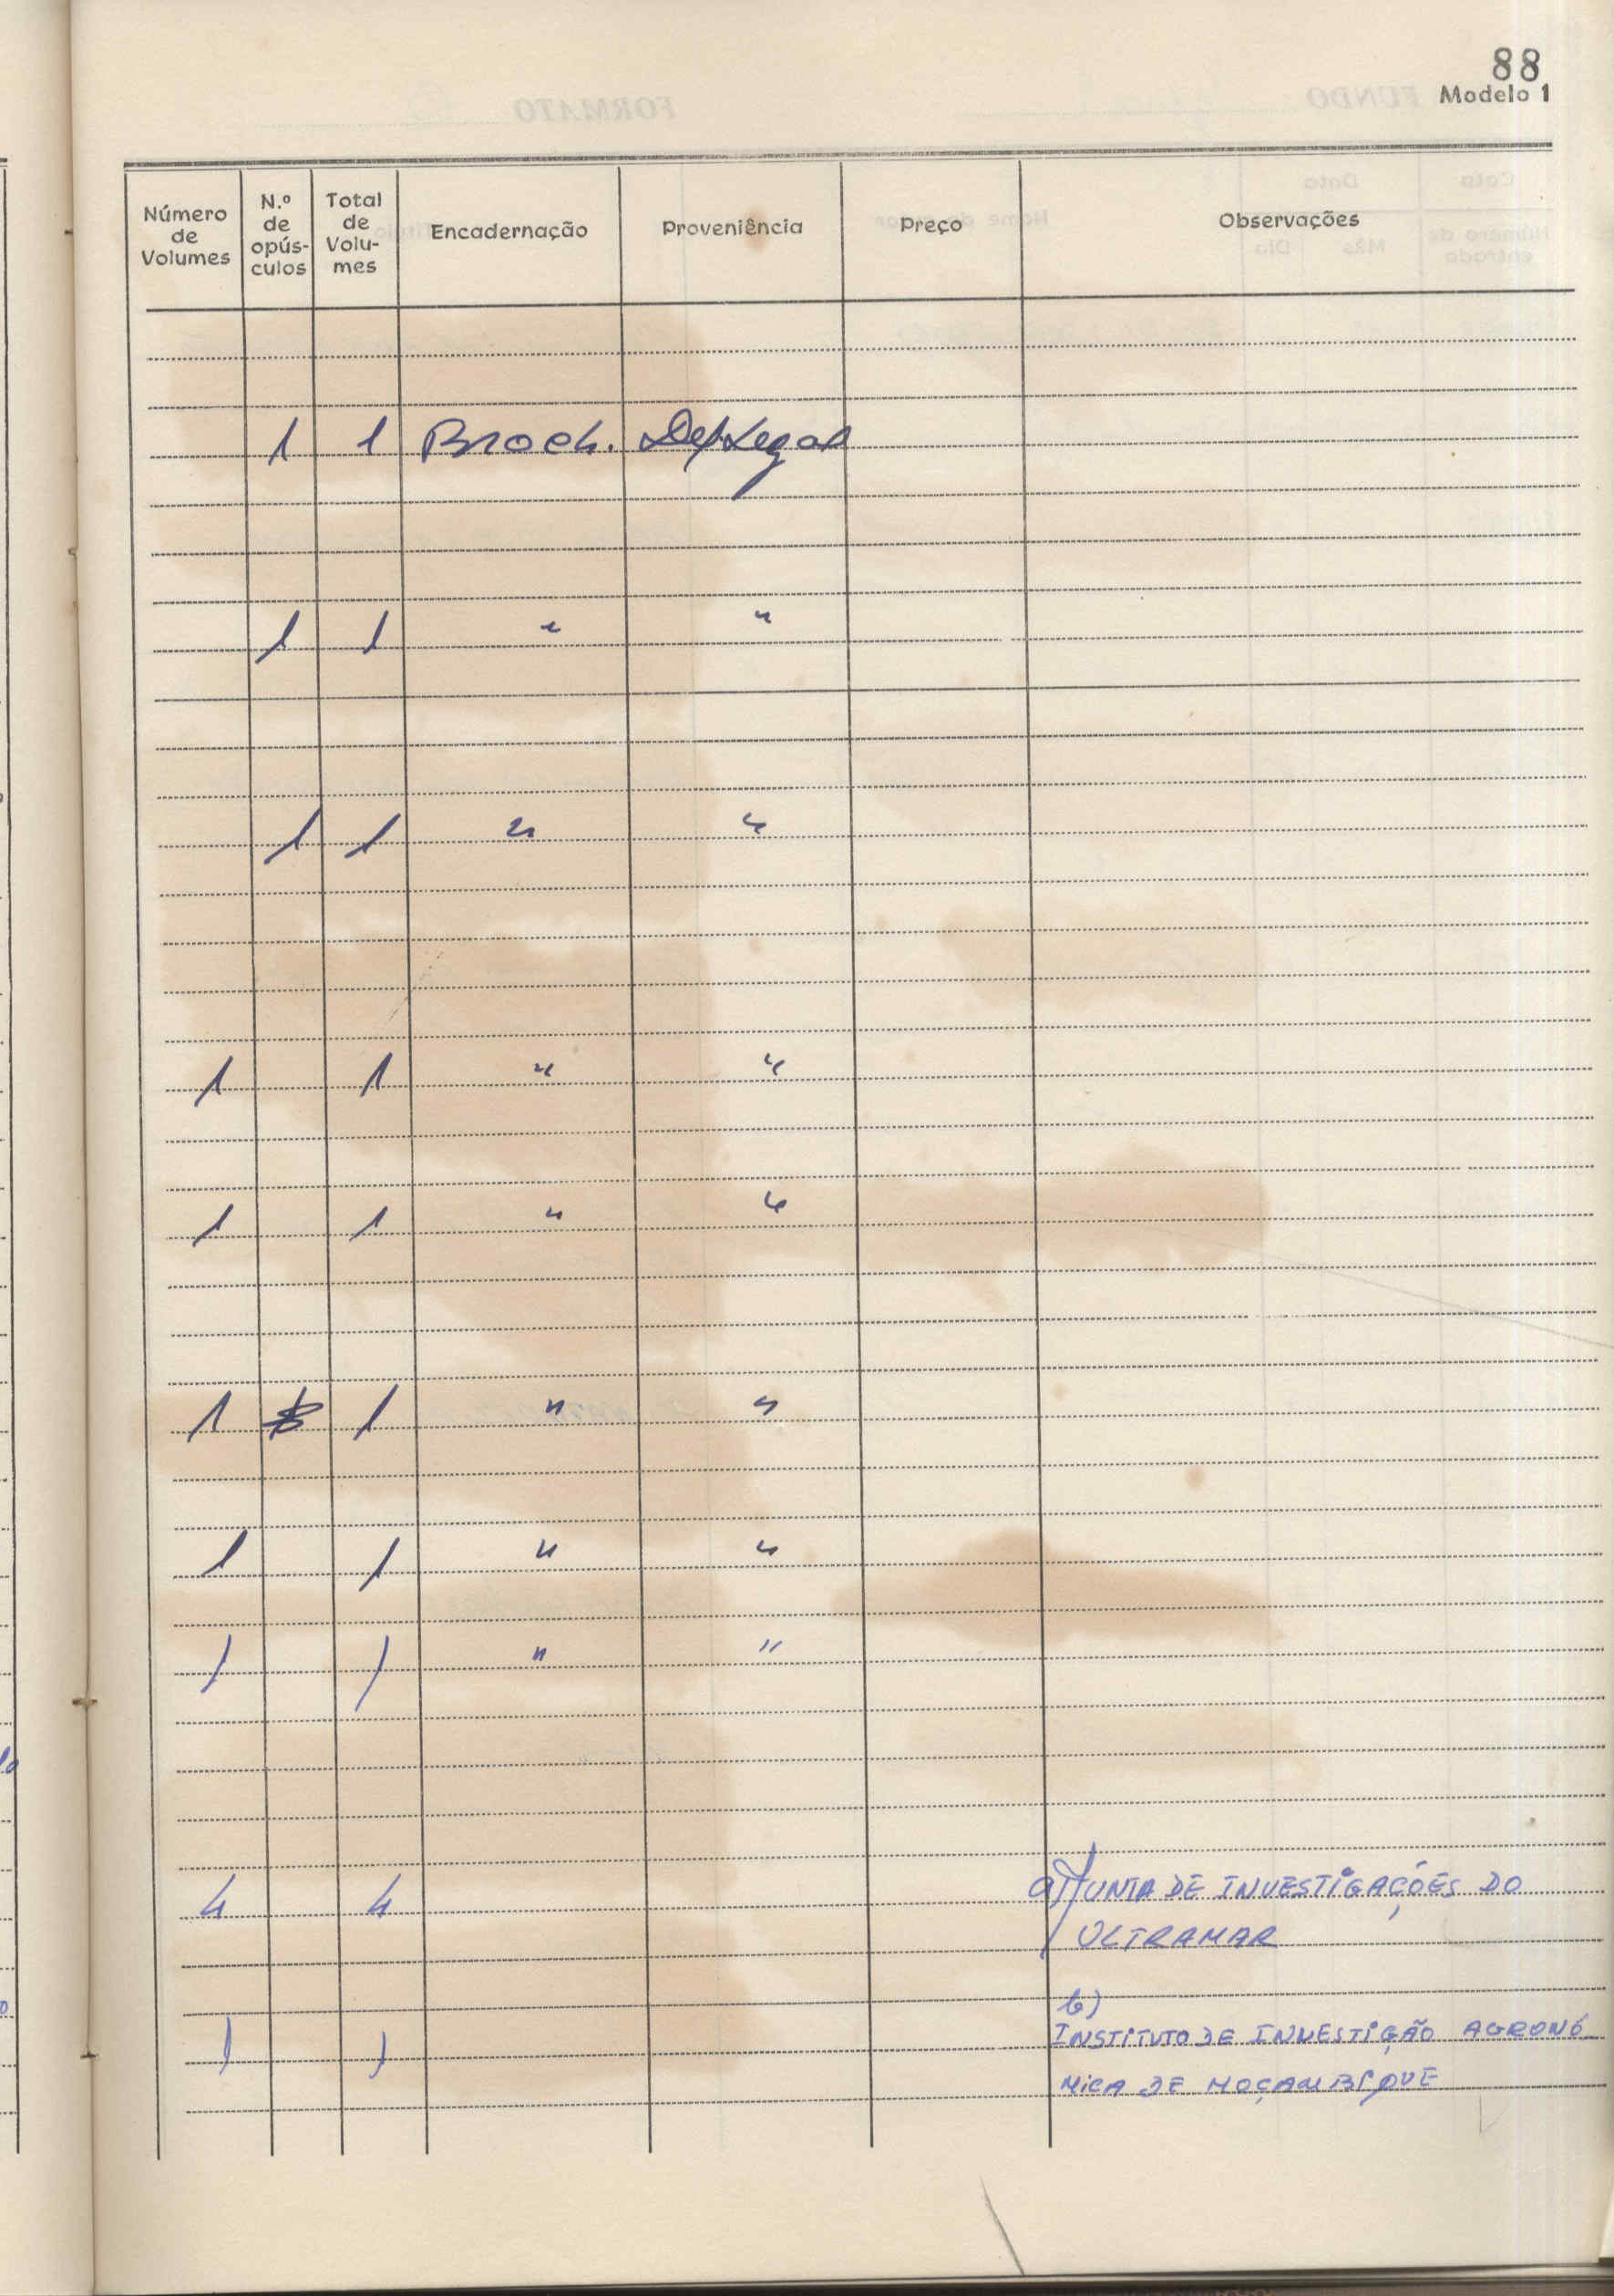 88
Modelo 1
Número de Volumes
N.º de opús-culos
Total de Volu-mes
Encadernação
Proveniência
Preço
Observações
1 1 Broch. Dep. Legal
1 1 " "
1 1 " "
1 1 " "
1 1 " "
1 1 " "
1 1 " "
1 1 " "
4 4 a) JUNTA DE INVESTIGAÇÕES DO
ULTRAMAR
b)
1 1 INSTITUTO DE INVESTIGÃO AGRONÓ
MICA DE MOÇAMBIQUE